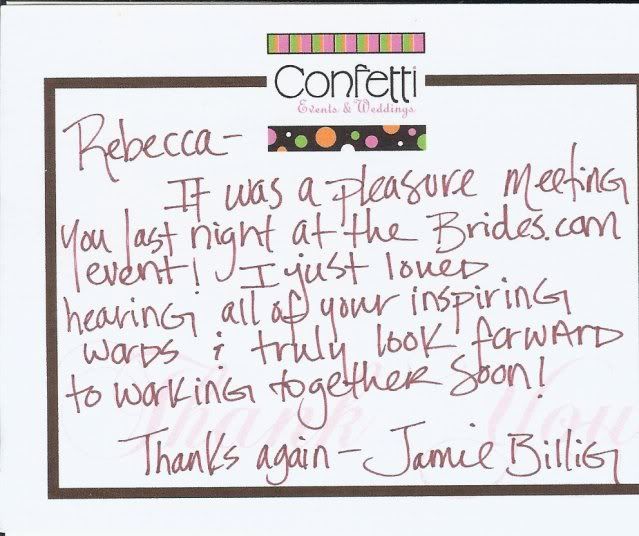 Confetti
Events & Weddings
Rebecca-
It was a pleasure meeting
you last night at the Brides.com
event! I just loved
hearing all of your inspiring
words & truly look forward
to working together soon!
Thank You
Thanks again - Jamie Billig